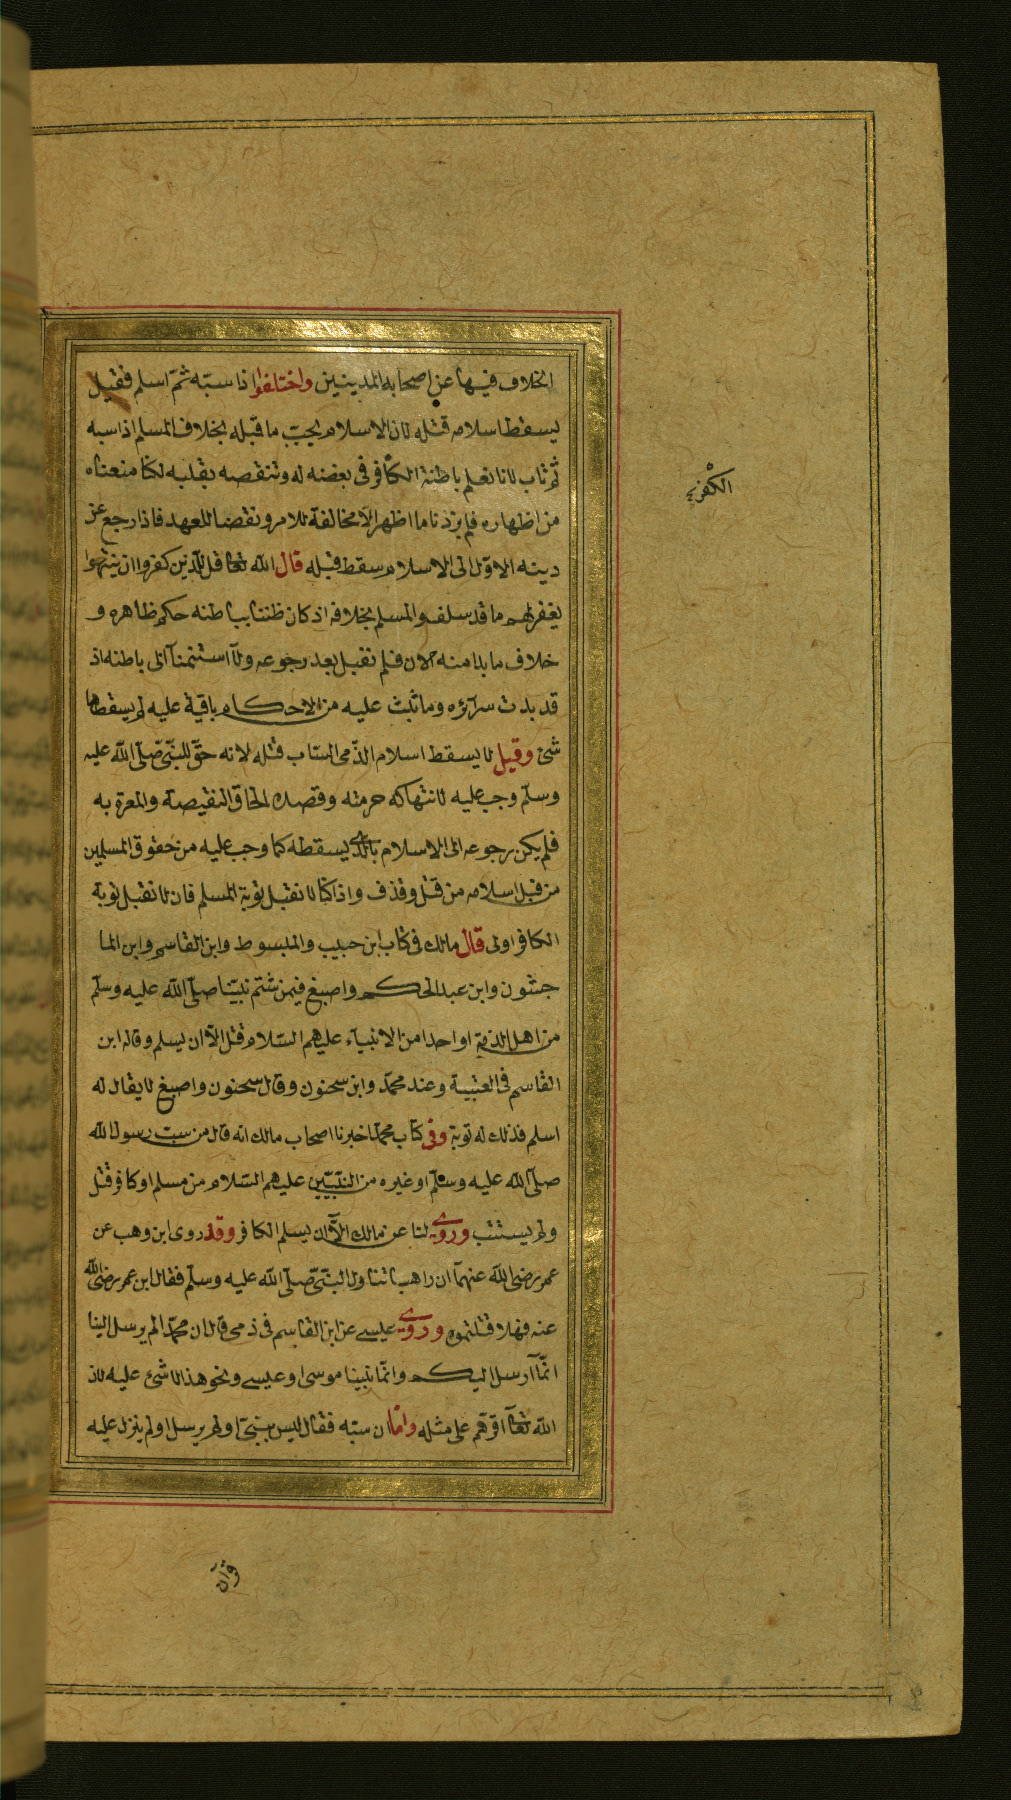 الخلاف فيها عن اصحابه المدينين واختلفوا اذا سبه ثم اسلم فقيل
يسقط اسلامه قتله لان الاسلام يجب ما قبله بخلاف المسلم اذا سبه
ثم تاب لانا نعلم باطنة الكافر في بغضه له وتنقصه بقلبه لكنا منعناه
من اظهاره فلم يزدنا ما اظهر الا مخالفة للامر ونقضا للعهد فاذا رجع عن
دينه الاول الى الاسلام سقط قبله قال الله تعا قل للذين كفروا ان ينتهوا
يغفر لهم ما قد سلف والمسلم بخلافه اذ كان ظننا بباطنه حكم ظاهره و
خلاف ما بدا منه الان فلم نقبل بعد رجوعه ولا استنمنا الى باطنه اذ
قد بدت سرآئره وما ثبت عليه من الاحكام باقية عليه لم يسقطها
شئ وقيل لا يسقط اسلام الذمى الساب قتله لانه حق للنبى صلى الله عليه
وسلم وجب عليه لانتهاكه حرمته وقصده الحاق النقيصة والمعرة به
فلم يكن رجوعه الى الاسلام بالذى يسقطه كما وجب عليه من حقوق المسلمين
من قبل اسلامه من قتل وقذف واذا كنا لا نقبل توبة المسلم فان لا نقبل توبة
الكافر اولى قال مالك فى كتاب ابن حبيب والمبسوط وابن القاسم وابن الما
جشون وابن عبد الحكم واصبغ فيمن شتم نبينا صلى الله عليه وسلم
من اهل الذمة او احدا من الانبيآء عليهم السلام قتل الا ان يسلم وقاله ابن
القاسم فى العتبية وعند محمد وابن سحنون وقال سحنون واصبغ لا يقال له
اسلم فذلك له توبة وفى كتاب محمد اخبرنا اصحاب مالك انه قال من سب رسول الله
صلى الله عليه وسلم او غيره من النبيين عليهم السلام من مسلم او كافر قتل
ولم يستتب وروى لنا عن مالك الا ان يسلم الكافر وقد روى ابن وهب عن
عمر رضى الله عنهما ان راهبا تناول النبى صلى الله عليه وسلم فقال ابن عمر رضى الله
عنه فهلا قتلتموه وروى عيسى عن ابن القاسم فى ذمى قال ان محمدا لم يرسل الينا
انما ارسل اليكم وانما نبينا موسى او عيسى ونحو هذا لا شئ عليه لان
الله تعا اقرهم على مثله واما ان سبه فقال ليس بنبى او لم يرسل او لم ينزل عليه
قرآن